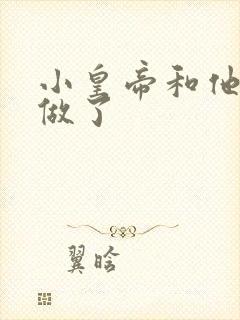 小皇帝和他
做了
翼晗